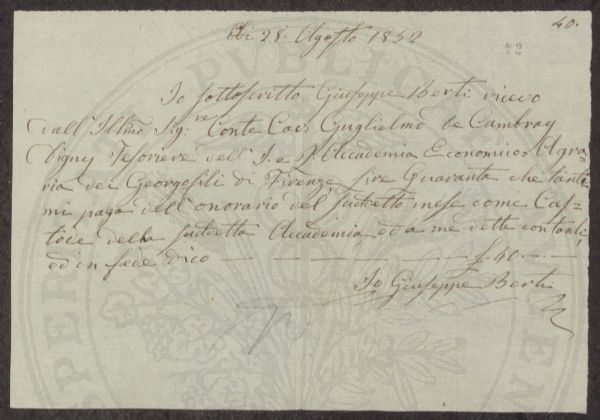 40.
42
Adi 28. Agosto 1852
Io sottoscritto Giuseppe Berti ricevo
dall'Illmo Sig.re Conte Cav. Guglielmo de Cambray
Digny Tesoriere dell'I. e R. Accademia Economico-Agra=
ria dei Georgofili di Firenze lire Quaranta che tante
mi paga dell'onorario del suddetto mese come Cus=
tode della suddetta Accademia ed a me dette contanti,
ed in fede dico — — — — — £ 40. —
Io Giuseppe Berti